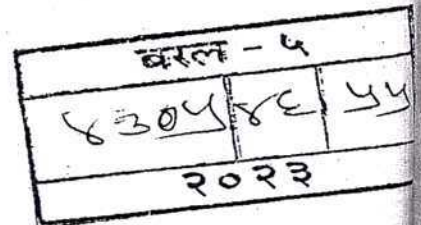 बरल - ५
४३०५ ४६ ५५
२०२३